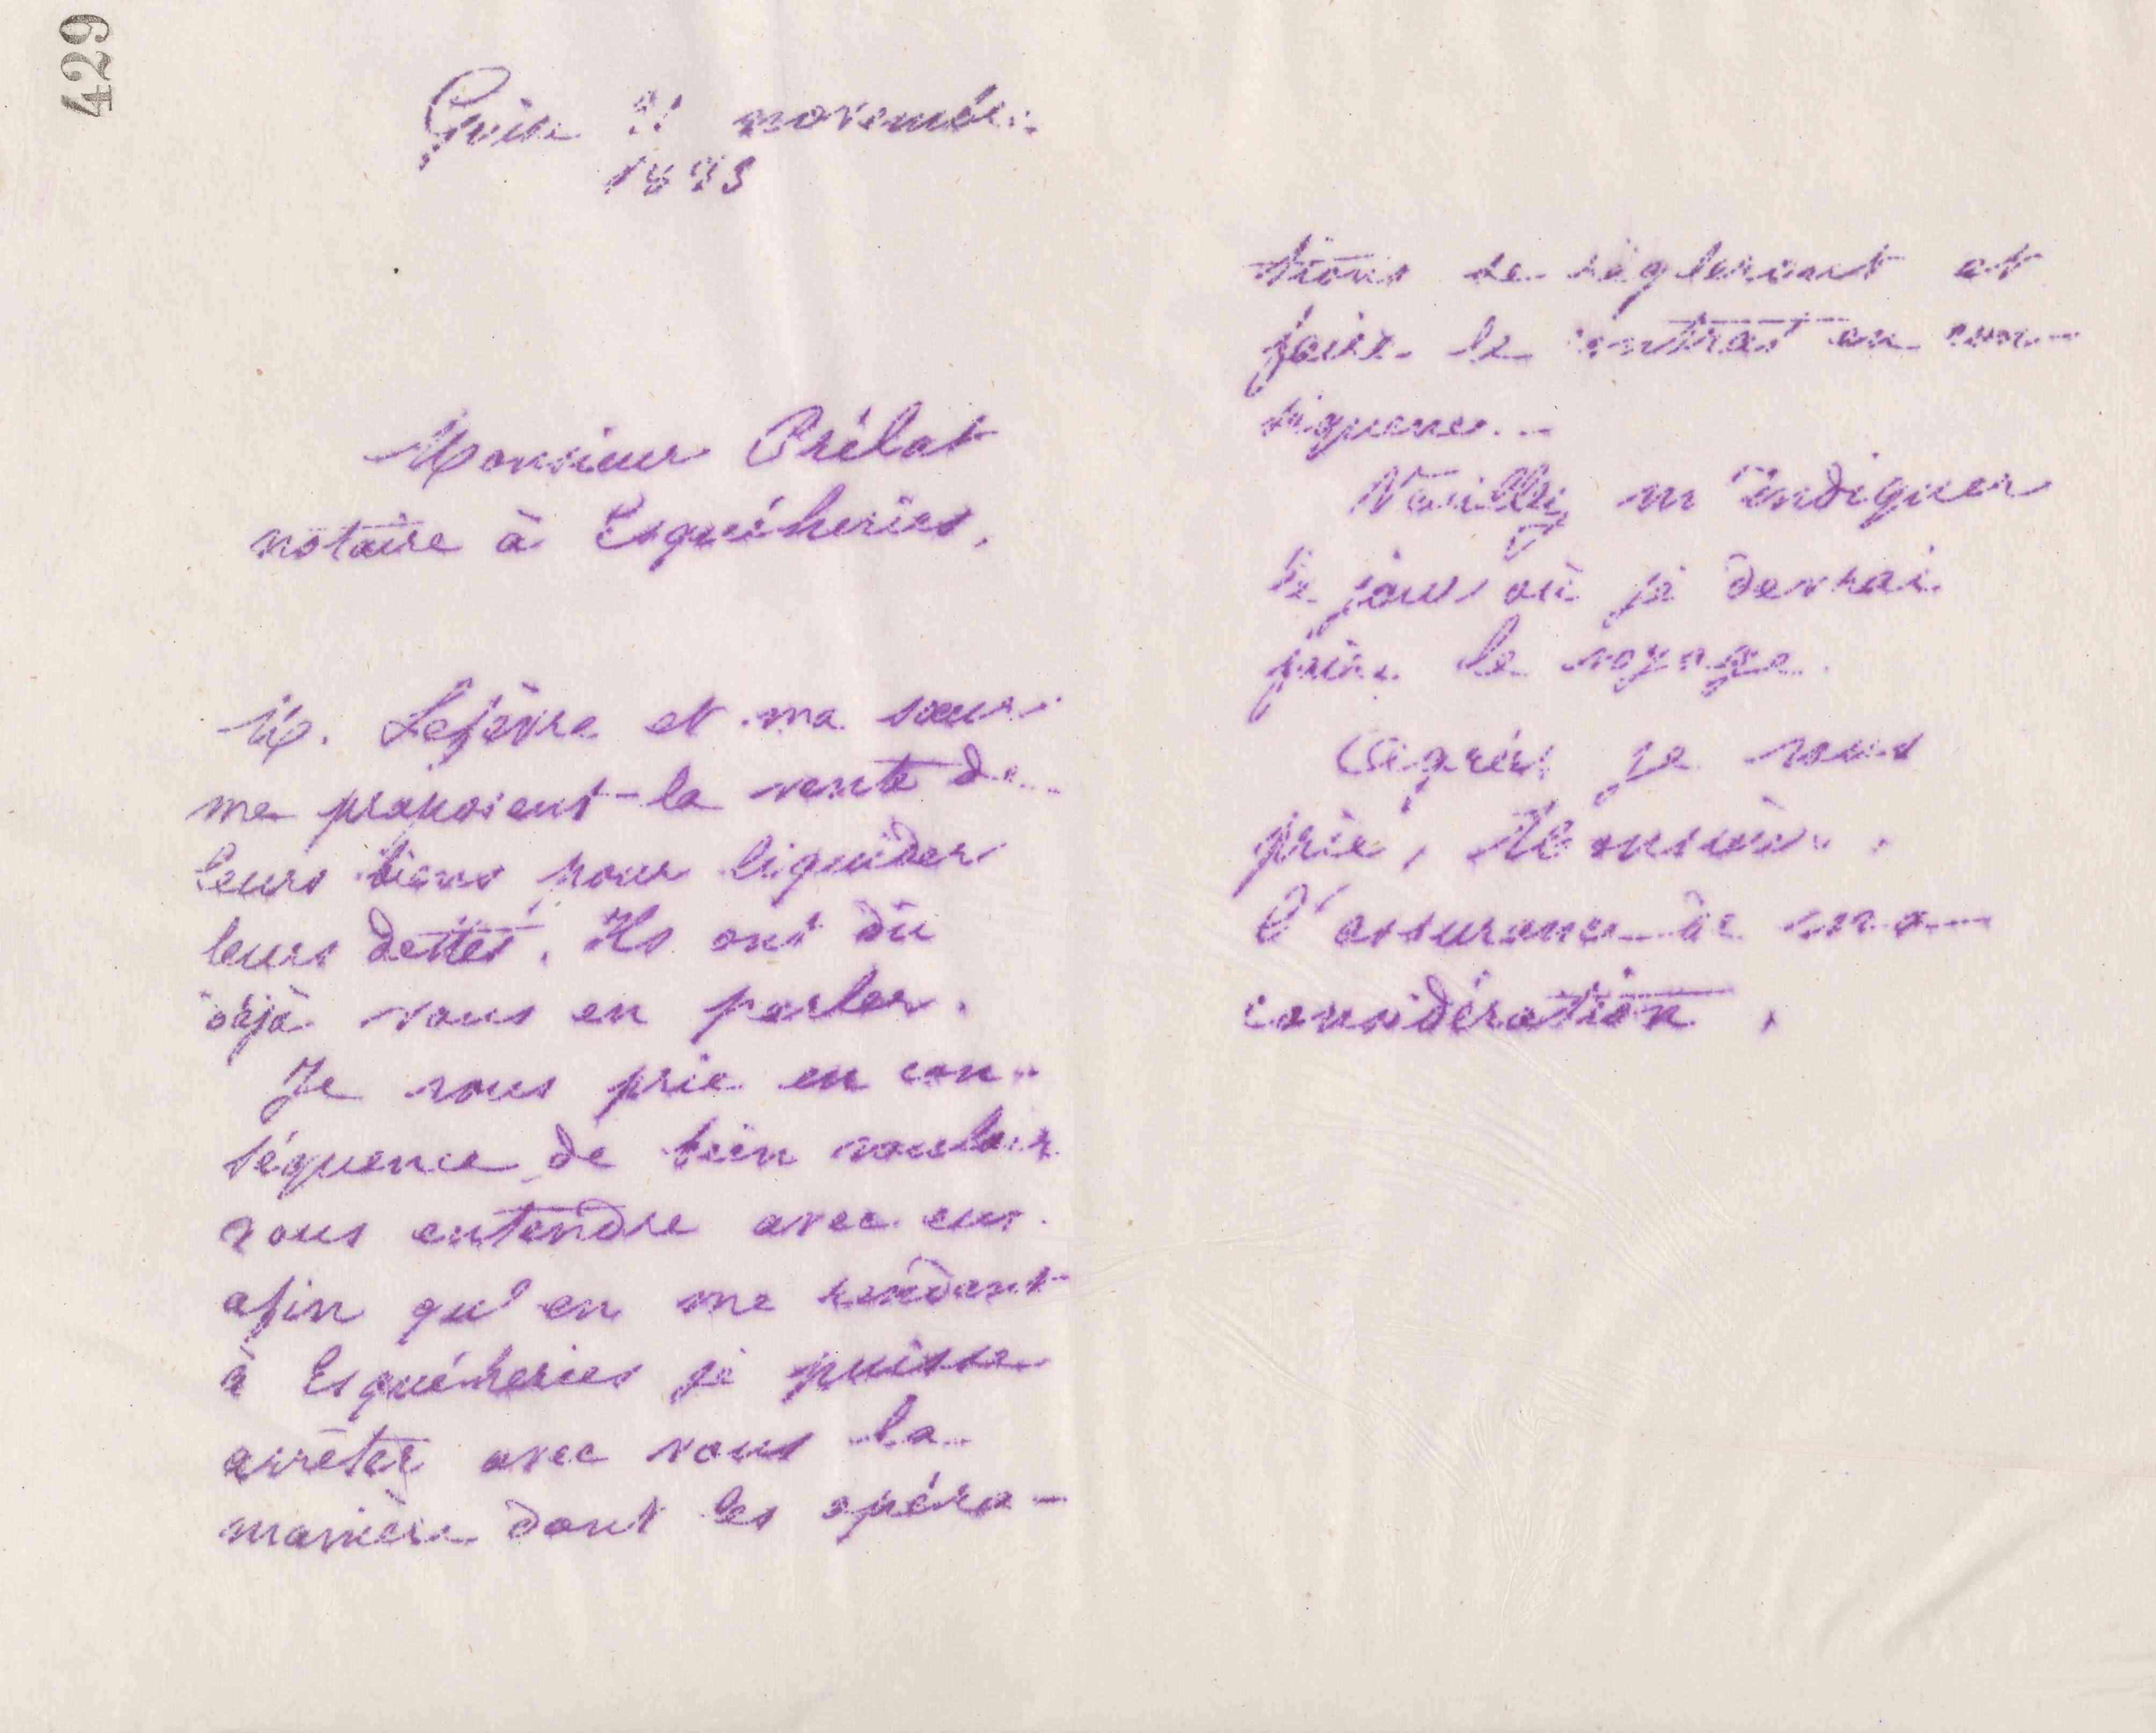 429
Guise 21 novembre
1883
Monsieur Prélat
notaire à Esquéheries.
M. Lefèvre et ma sœur
me proposent la vente de
leurs biens pour liquider
leurs dettes. Ils ont dû
déjà vous en parler.
Je vous prie en con-
séquence de bien vouloir
vous entendre avec eux
afin qu'en me rendant
à Esquéheries je puisse
arrêter avec vous la
manière dont les opéra-
tions se régleront et
faire le contrat en con-
séquence.
Veuillez m'indiquer
le jour où je devrai
faire le voyage.
Agréez je vous
prie, Monsieur,
l'assurance de ma
considération.